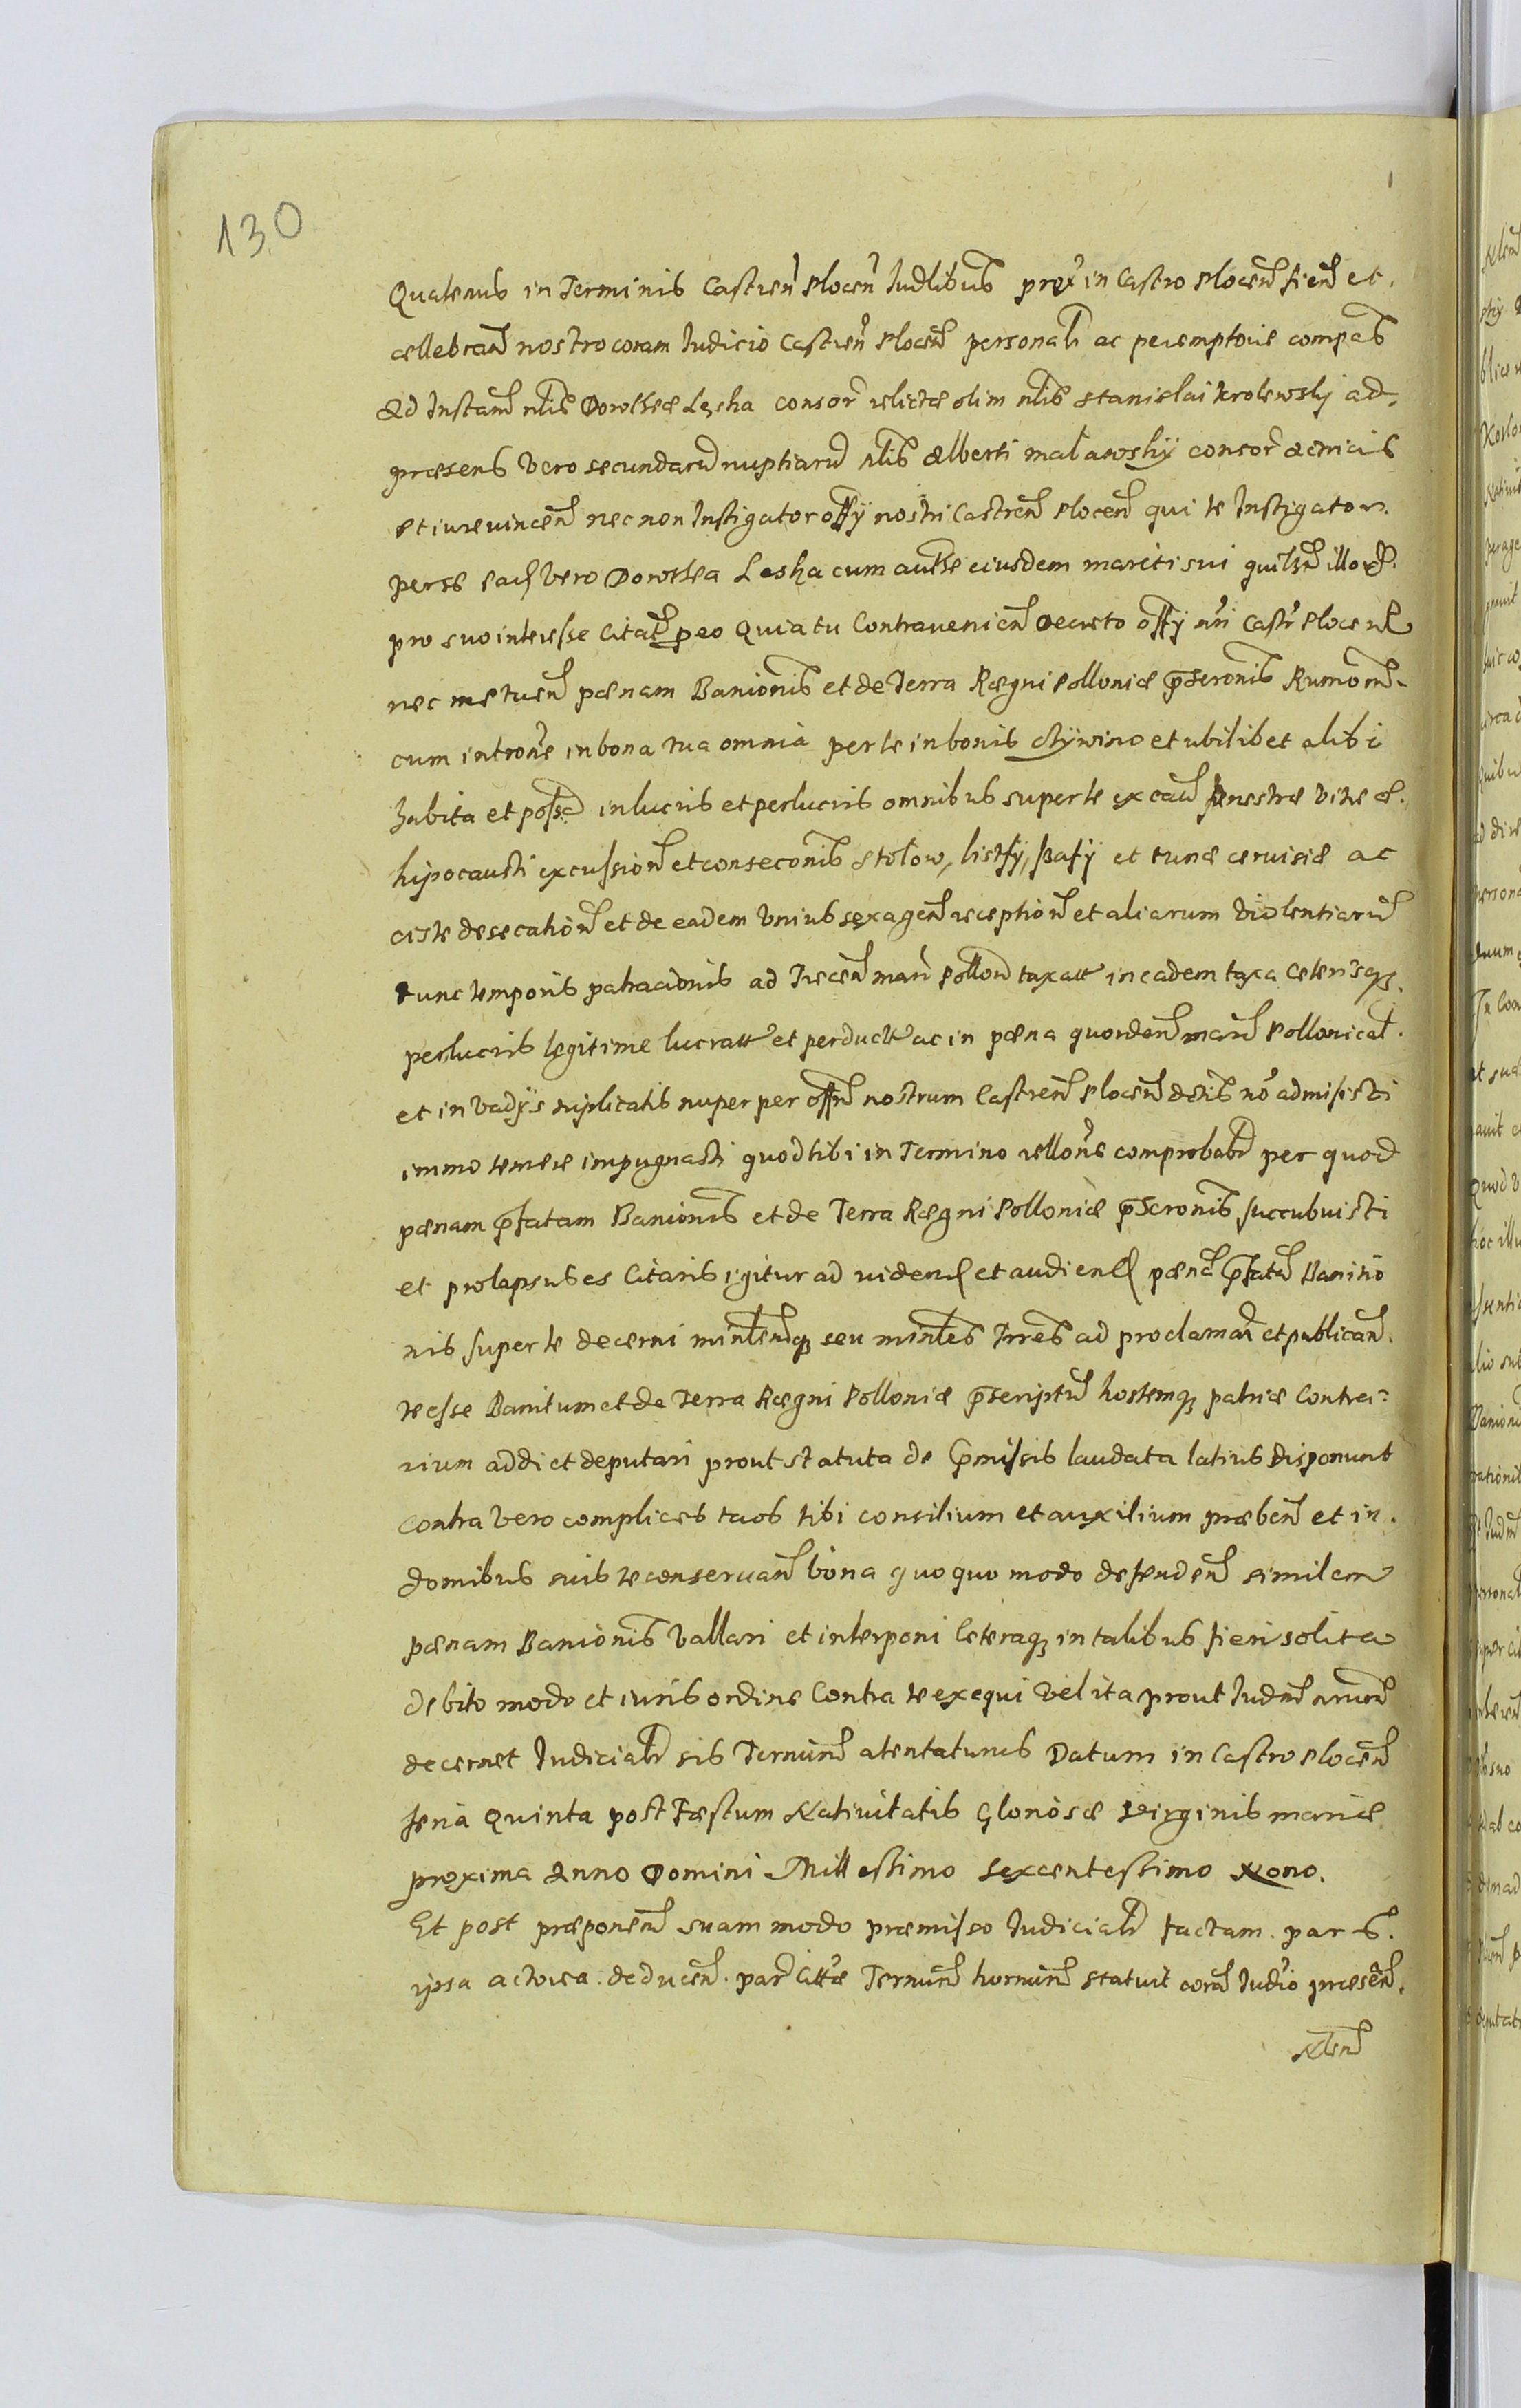 130
Quatenus in Terminis Castren Plocen Iudlibus prox in Castro Plocen fien et
cellebran nostro coram Iudicio Castren Plocen personalr ac peremptorie compas
Ad Instam nlis Dorotheæ Lęska consor relictæ olim nlis Stanislai Krolewsky ad
præsens vero secundaru nuptiaru nlis Alberti malanowskÿ consor actricis
et iure vincen nec non Instigator offÿ nostri Castren Plocen qui te Instigator
per se ead vero Dorothea Leska cum authe eiusdem mariti sui quilbt illor
pro suo interesse Citat p eo Quia tu Contravenien Decreto offÿ nri Castr Plocen
nec metuen pænam Banionis et de Terra Regni Polloniæ pscronis
cum introne in bona tua omnia per te in bonis et ubilibet alibi
habita et possa in lucris et perlucris omnibus super te ex ca fenestræ vitreæ
hipocausti excussion et conseconis stolow, listfÿ, et tunæ cervisiæ ac
ceste desecation et de eadem unius sexagen reception et aliarum violentiaru
tunc temporis patracionis ad Trecen mar Pollon taxatt in eadem taxa Ceterisq
perlucris legitime lucratt et perductt ac in pæna quorden mar Pollonical
et in vadÿs triplicatis nuper per offm nostrum Castren Plocen decis no admisisti
immo temere impugnasti quod tibi in Termino rellone comprobabr per quod
pænam pfatam Banionis et de Terra Regni Polloniæ pscronis succubuisti
et prolapsus es Citaris igitur ad viden et audien pæna pfata Banitio
nis super te decerni minlemq seu minles Trres ad proclaman et publican
te esse Banitum et de Terra Regni Polloniæ pscriptu hostemq patriæ Contra
rium addi et deputari prout statuta de pmissis laudata latius disponunt
contra vero complices tuos tibi consilium et auxilium præben et in
domibus suis te conservan bona quoquo modo defenden similem
pænam Banionis vallari et interponi Ceteraq in talibus fieri solita
debito modo et iuris ordine Contra te exequi vel ita prout Iudm nrum
decernet Iudicialr sis Terminu atentaturus Datum in Castro Plocen
feria Quinta post Fæstum Nativitatis Gloriosæ Virginis mariæ
proxima Anno Domini Millesimo Sexcentesimo Nono.
Et post præponem suam modo præmisso Iudicialr factam pars
ipsa actorea deducen par Cittæ Terminu hornum statuit cora Iudio præsen